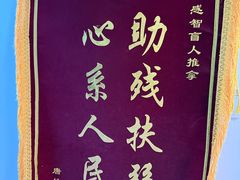 感智盲人推拿
助残扶
心系人民
唐